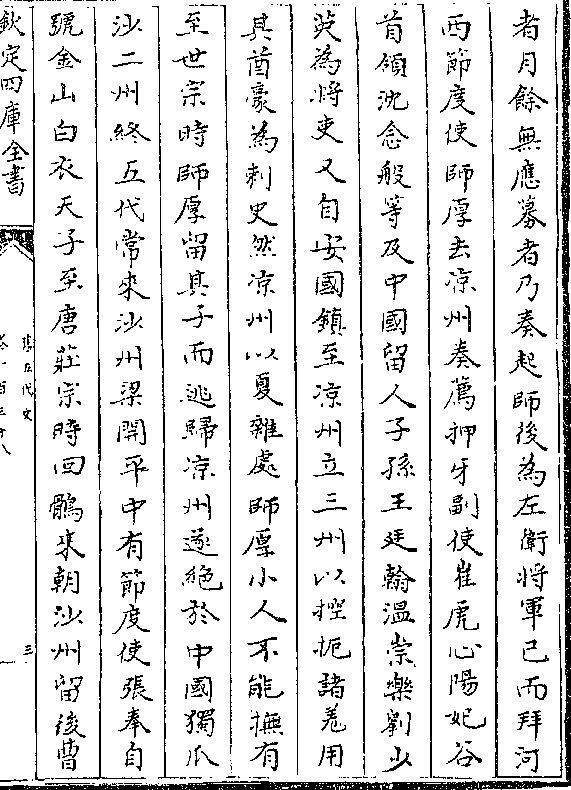 者月餘無應募者乃奏起師後為左衛將軍已而拜河
西節度使師厚去凉州奏薦押牙副使崔虎心陽妃谷
首領沈念般等及中國留人子孫王廷翰温崇樂劉少
英為將吏又自安國鎮至凉州立三州以控扼諸羌用
其酋豪為刺史然凉州以夏雜處師厚小人不能撫有
至世宗時師厚留其子而逃歸凉州遂絶於中國獨瓜
沙二州終五代常來沙州梁開平中有節度使張奉自
號金山白衣天子至唐莊宗時回鶻來朝沙州留後曹
欽定四庫全書
五代史
卷一百三十八
三